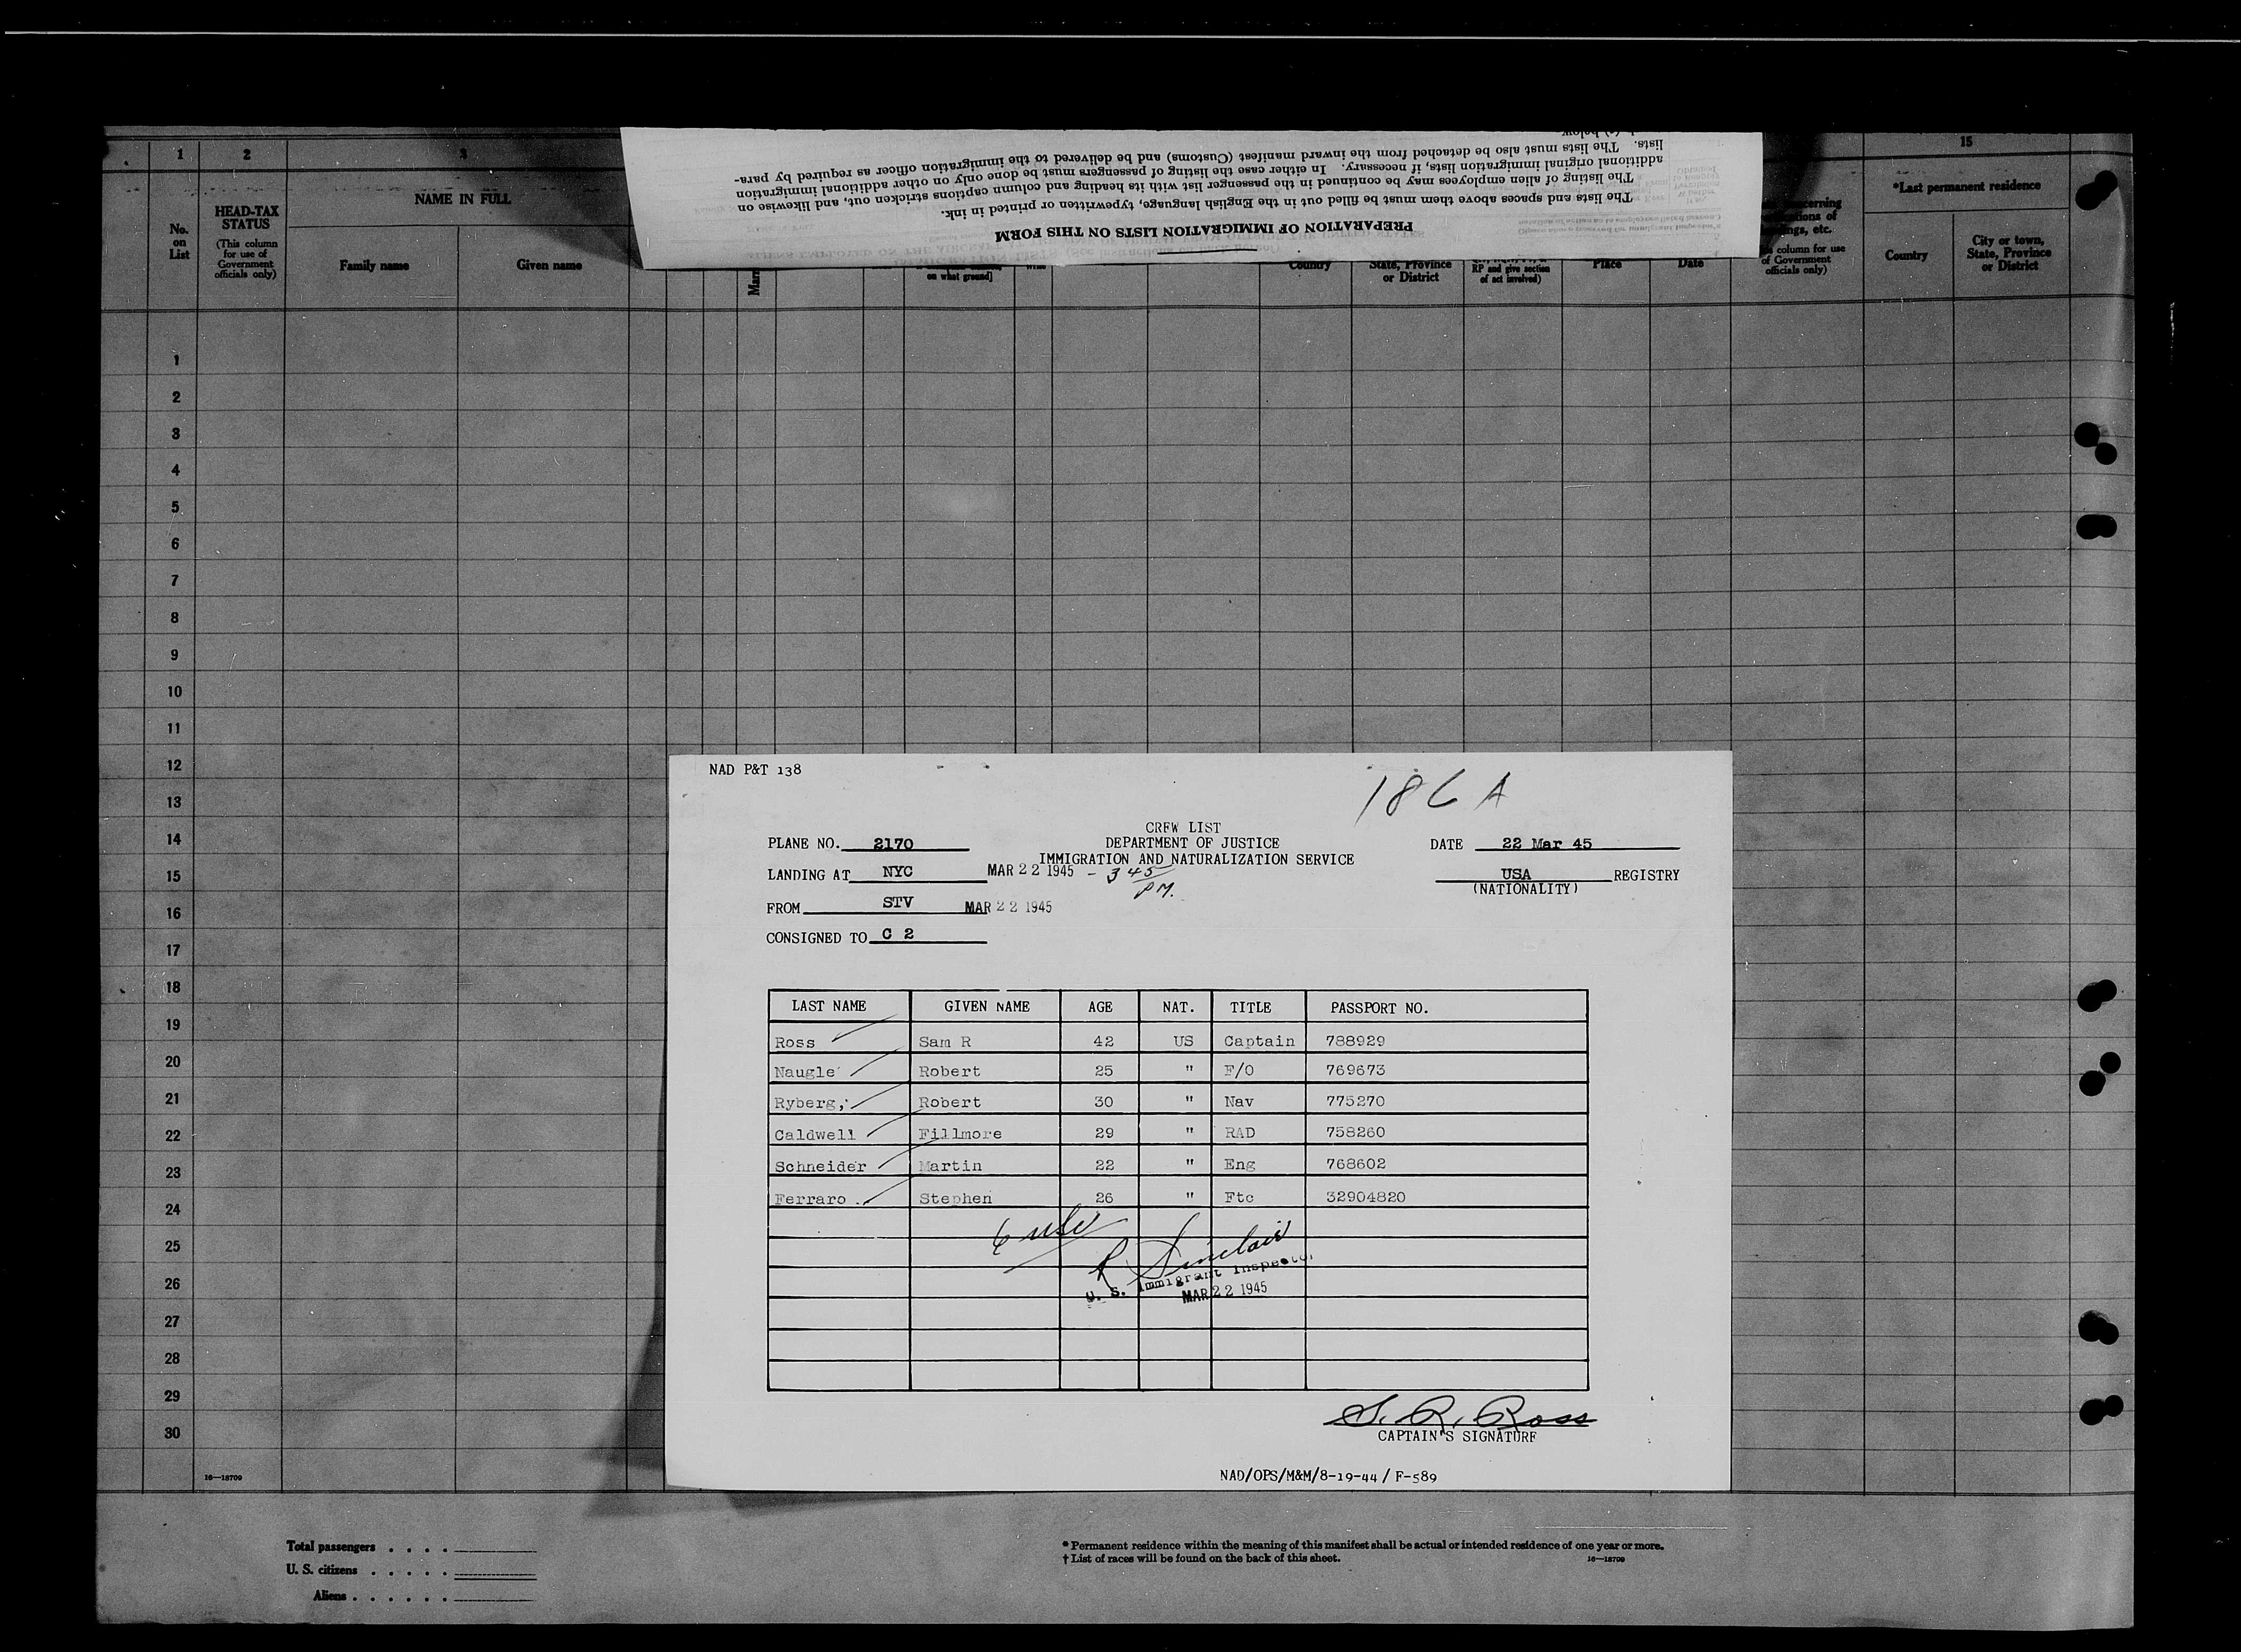 1 2 3 15
No. on List
HEAD-TAX STATUS
(This column for use of Government officials only)
NAME IN FULL
Family name Given name
*Last permanent residence
Country
City or town, State, Province or District
on what ground]
Country
State, Province or District
RP and give section of act involved)
Place
Date
column for use of Government officials only)
PREPARATION OF IMMIGRATION LISTS ON THIS FORM
The lists and spaces above them must be filled out in the English language, typewritten or printed in ink.
The listing of alien employees may be continued in the passenger list with its heading and column captions stricken out, and likewise on
additional original immigration lists, if necessary. In either case the listing of passengers must be done only on other additional immigration
lists. The lists must also be detached from the inward manifest (Customs) and be delivered to the immigration officer as required by para-
1
2
3
4
5
6
7
8
9
10
11
12
13
14
15
16
17
18
19
20
21
22
23
24
25
26
27
28
29
30
16—18709
NAD P&T 138
186 A
CREW LIST
PLANE NO. 2170 DEPARTMENT OF JUSTICE DATE 22 Mar 45
IMMIGRATION AND NATURALIZATION SERVICE
LANDING AT NYC MAR 22 1945 - 3 45 PM. USA REGISTRY
(NATIONALITY)
FROM STV MAR 22 1945
CONSIGNED TO C 2
LAST NAME GIVEN NAME AGE NAT. TITLE PASSPORT NO.
Ross Sam R 42 US Captain 788929
Naugle Robert 25 " F/O 769673
Ryberg, Robert 30 " Nav 775270
Caldwell Fillmore 29 " RAD 758260
Schneider Martin 22 " Eng 768602
Ferraro Stephen 26 " Ftc 32904820
R Sinclair
U. S. Immigrant Inspector
MAR 22 1945
S. R. Ross
CAPTAIN'S SIGNATURE
NAD/OPS/M&M/8-19-44/ F-589
Total passengers . . . .
U. S. citizens . . . . .
Aliens . . . . . .
* Permanent residence within the meaning of this manifest shall be actual or intended residence of one year or more.
† List of races will be found on the back of this sheet. 16—18709